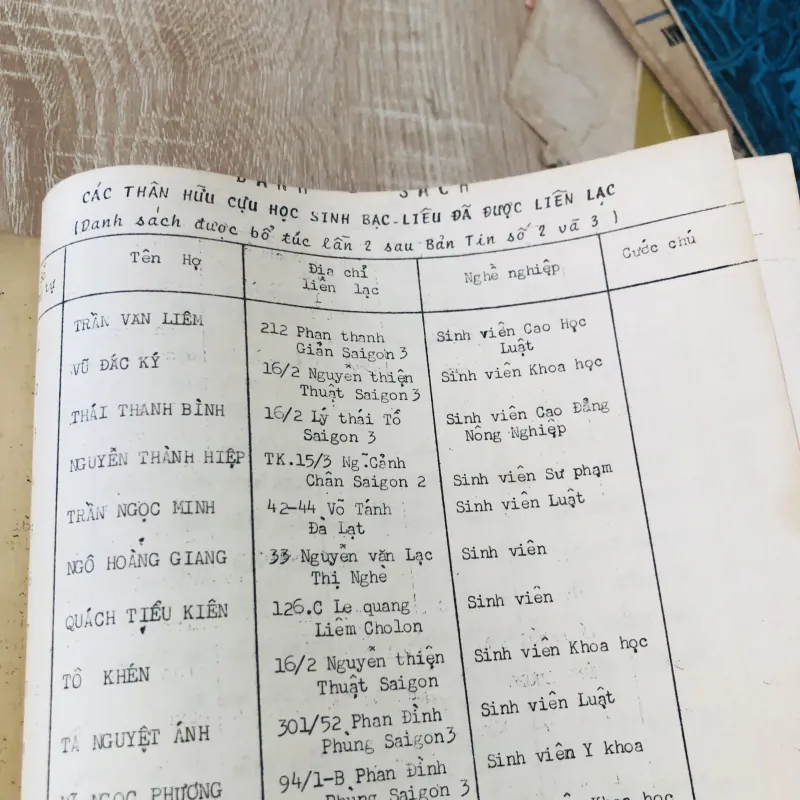 DANH SÁCH
CÁC THÂN HỮU CỰU HỌC SINH BẠC-LIÊU ĐÃ ĐƯỢC LIÊN LẠC
(Danh sách được bổ túc lần 2 sau Bản Tin số 2 và 3)
Tên Họ
Địa chỉ
liên lạc
Nghề nghiệp
Cước chú
TRẦN VĂN LIÊM
212 Phan thanh
Giản Saigon 3
Sinh viên Cao Học
Luật
VŨ ĐẮC KÝ
16/2 Nguyễn thiện
Thuật Saigon 3
Sinh viên Khoa học
THÁI THANH BÌNH
16/2 Lý thái Tổ
Saigon 3
Sinh viên Cao Đẳng
Nông Nghiệp
NGUYỄN THÀNH HIỆP
TK.15/3 Ng~.Cảnh
Chân Saigon 2
Sinh viên Sư phạm
TRẦN NGỌC MINH
42-44 Võ Tánh
Đà Lạt
Sinh viên Luật
NGÔ HOÀNG GIANG
33 Nguyễn văn Lạc
Thị Nghè
Sinh viên
QUÁCH TIỂU KIÊN
126.C Le quang
Liêm Cholon
Sinh viên
TÔ KHÉN
16/2 Nguyễn thiện
Thuật Saigon
Sinh viên Khoa học
TẠ NGUYỆT ÁNH
301/52 Phan Đình
Phùng Saigon 3
Sinh viên Luật
NGỌC PHƯƠNG
94/1-B Phan Đình
Phùng Saigon 3
Sinh viên Y khoa
Khoa học